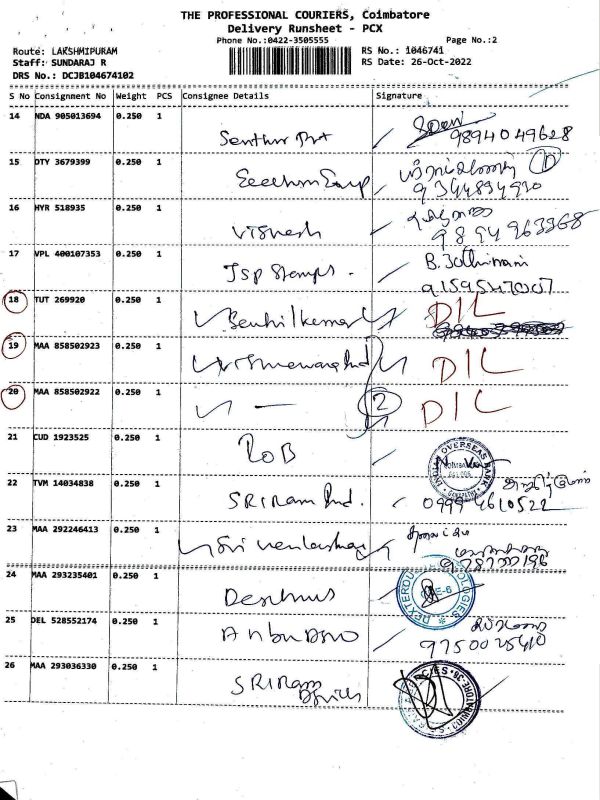 THE PROFESSIONAL COURIERS, Coimbatore
Delivery Runsheet - PCX
Phone No.:0422-3505555
Page No.:2
Route: LAKSHMIPURAM
RS No.: 1046741
Staff: SUNDARAJ R
RS Date: 26-Oct-2022
DRS No.: DCJB104674102
S No Consignment No Weight PCS Consignee Details Signature
14 NDA 905013694 0.250 1
9894049628
15 DTY 3679399 0.250 1
9344894920
16 HYR 518935 0.250 1 Vignesh
9894963368
17 VPL 400107353 0.250 1 Jsp Stamps. B. Jothimani
9159547007
18 TUT 269920 0.250 1 Senthilkumar D/L
19 MAA 858502923 0.250 1 D/L
20 MAA 858502922 0.250 1 — 2 D/L
21 CUD 1923525 0.250 1 ROB
INDIAN OVERSEAS BANK
22 TVM 14034838 0.250 1 SRIRam Ind.
09994610522
23 MAA 292246413 0.250 1
9787777196
24 MAA 293235401 0.250 1
25 DEL 528552174 0.250 1
9750025410
26 MAA 293036330 0.250 1 SRIRam